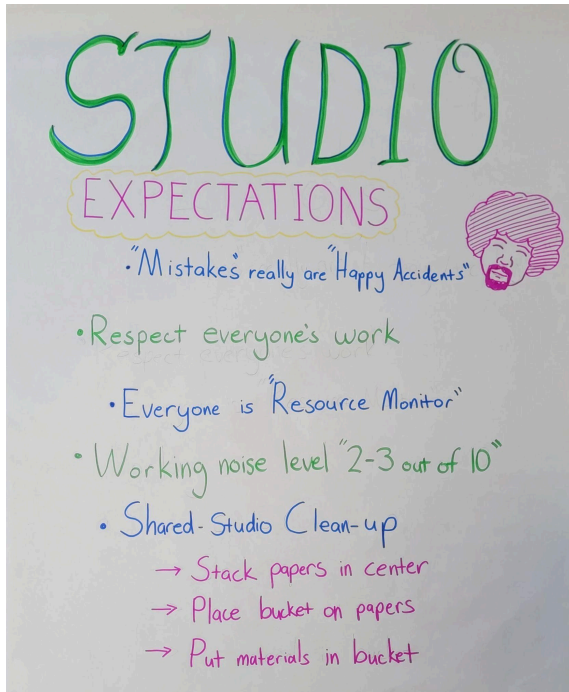 STUDIO
EXPECTATIONS
• "Mistakes" really are "Happy Accidents"
• Respect everyone's work
• Everyone is "Resource Monitor"
• Working noise level "2-3 out of 10"
• Shared-Studio Clean-up
→ Stack papers in center
→ Place bucket on papers
→ Put materials in bucket